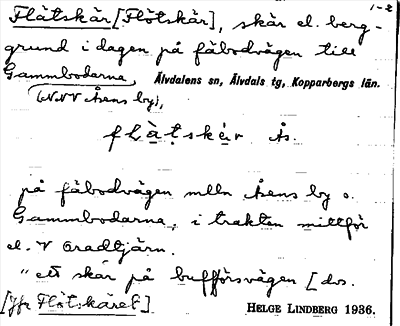 1-2
Flåtskär [Flötskär], skär el. berg-
grund i dagen på fäbodvägen till
Gammbodarna, Älvdalens sn, Älvdals tg, Kopparbergs län.
(NVV Åsens by),
Ås.
på fäbodvägen mlln Åsens by o.
Gammbodarna, i trakten mittför
el. V Oradtjärn.
"ett skär på bufförsvägen [dvs.
[Jfr Flötskäret]
HELGE LINDBERG 1936.